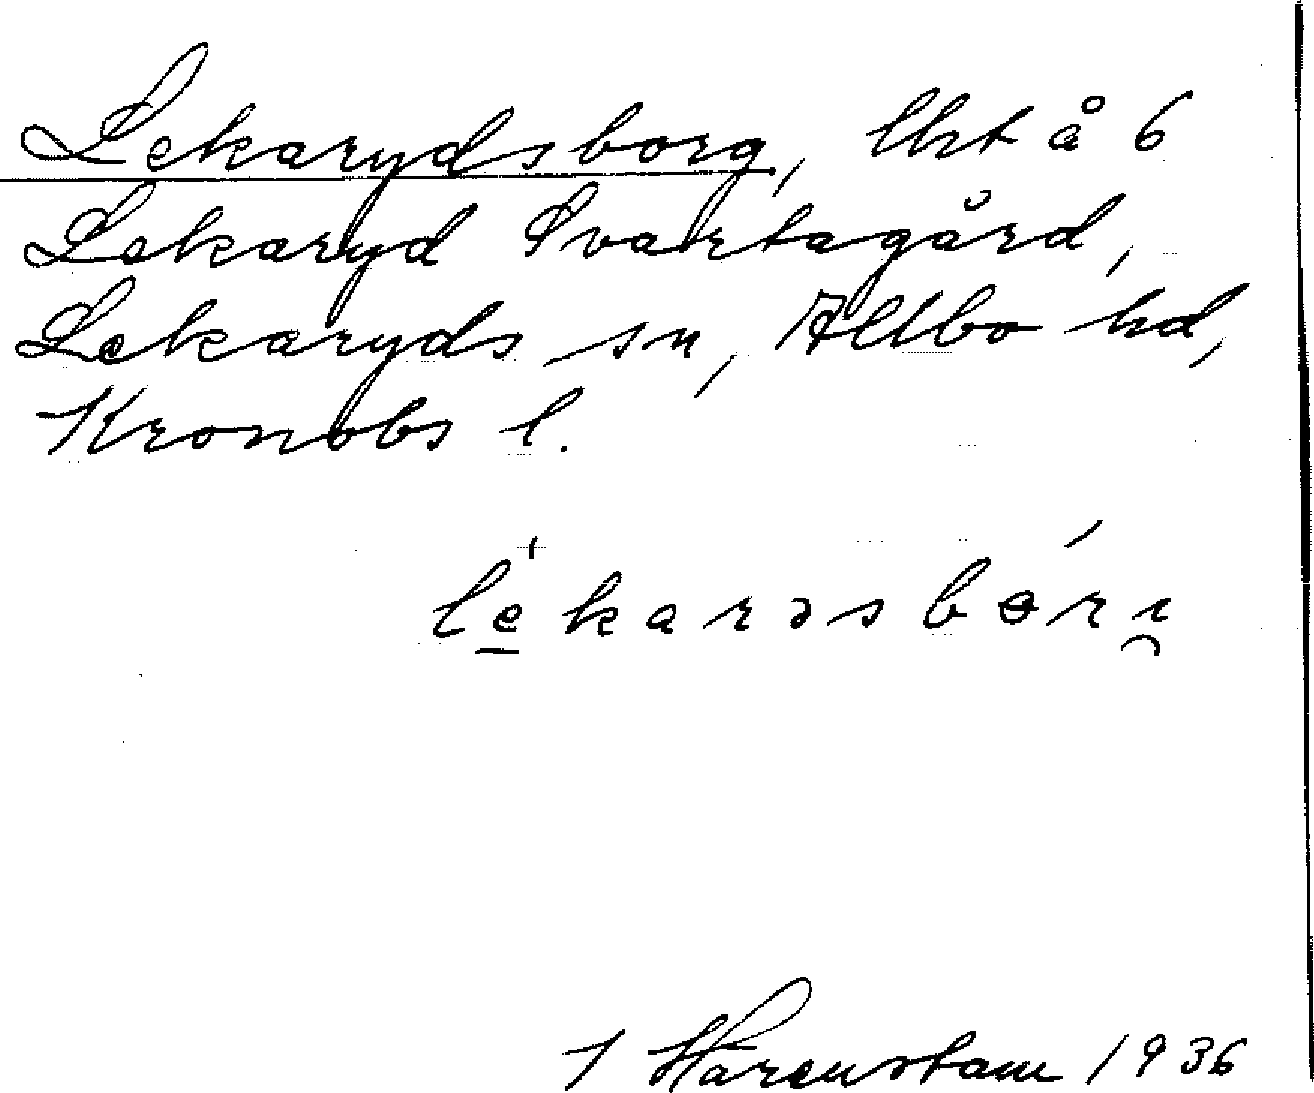 Lekarydsborg, lht å 6
Lekaryd Svartagård,
Lekaryds sn, Allbo hd,
Kronobs l.
lèkarəsbɵ́rı̯
J Harenstam 1936